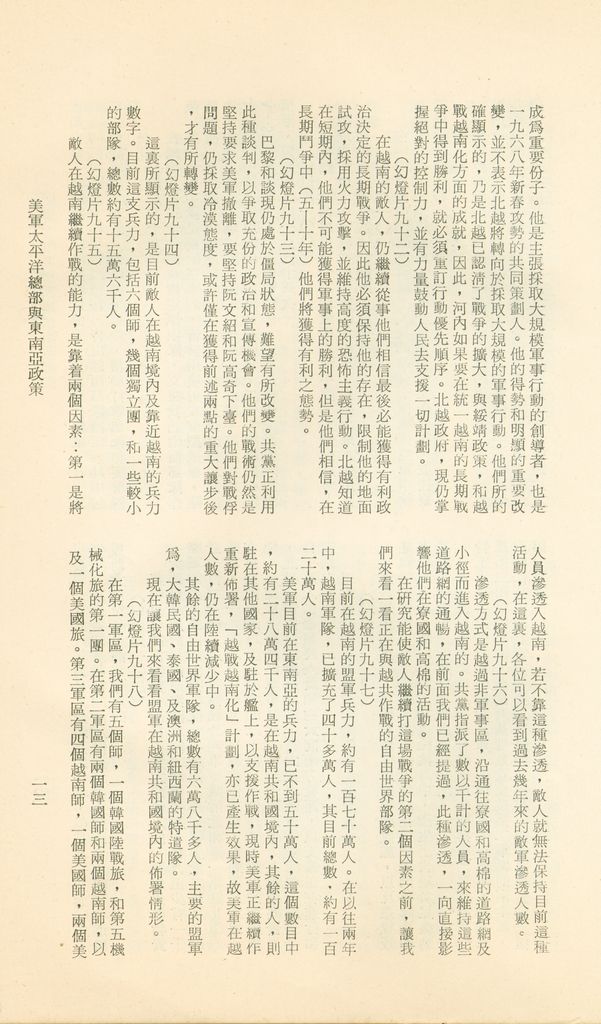 成為重要份子。他是主張採取大規模軍事行動的創導者，也是
一九六八年新春攻勢的共同策劃人。他的得勢和明顯的重要改
變，並不表示北越將轉向於採取大規模的軍事行動。他們所的
確顯示的，乃是北越已認清了戰爭的擴大，與綏靖政策，和越
戰越南化方面的成就，因此，河內如果要在統一越南的長期戰
爭中得到勝利，就必須重訂行動優先順序。北越政府，現仍掌
握絕對的控制力，並有力量鼓動人民去支援一切計劃。
（幻燈片九十二）
在越南的敵人，仍繼續從事他們相信最後必能獲得有利政
治決定的長期戰爭。因此他必須保持他的存在，限制他的地面
試攻，採用火力攻擊，並維持高度的恐怖主義行動。北越知道
在短期內，他們不可能獲得軍事上的勝利，但是他們相信，在
長期鬥爭中（五—十年）他們將獲得有利之態勢。
（幻燈片九十三）
巴黎和談現仍處於僵局狀態，難望有所改變。共黨正利用
此種談判，以爭取充份的政治和宣傳機會。他們的戰術仍然是
堅持要求美軍撤離，要堅持阮文紹和阮高奇下臺。他們對戰俘
問題，仍採取冷漠態度，或許僅在獲得前述兩點的重大讓步後
，才有所轉變。
（幻燈片九十四）
這裏所顯示的，是目前敵人在越南境內及靠近越南的兵力
數字。目前這支兵力，包括六個師，幾個獨立團，和一些較小
的部隊，總數約有十五萬六千人。
（幻燈片九十五）
敵人在越南繼續作戰的能力，是靠着兩個因素：第一是將
人員滲透入越南，若不靠這種滲透，敵人就無法保持目前這種
活動，在這裏，各位可以看到過去幾年來的敵軍滲透人數。
（幻燈片九十六）
滲透方式是越過非軍事區，沿通往寮國和高棉的道路網及
小徑而進入越南的。共黨指派了數以千計的人員，來維持這些
道路網的通暢，在前面我們已經提過，此種滲透，一向直接影
響他們在寮國和高棉的活動。
在研究能使敵人繼續打這場戰爭的第二個因素之前，讓我
們來看一看正在與越共作戰的自由世界部隊。
（幻燈片九十七）
目前在越南的盟軍兵力，約有一百七十萬人。在以往兩年
中，越南軍隊，已擴充了四十多萬人，其目前總數，約有一百
二十萬人。
美軍目前在東南亞的兵力，已不到五十萬人，這個數目中
，約有二十八萬四千人，是在越南共和國境內，其餘的人，則
駐在其他國家，及駐於艦上，以支援作戰，現時美軍正繼續作
重新佈署，「越戰越南化」計劃，亦已產生效果，故美軍在越
人數，仍在陸續減少中。
其餘的自由世界軍隊，總數有六萬八千多人，主要的盟軍
為，大韓民國、泰國、及澳洲和紐西蘭的特遣隊。
現在讓我們來看看盟軍在越南共和國境內的佈署情形。
（幻燈片九十八）
在第一軍區，我們有五個師，一個韓國陸戰旅，和第五機
械化旅的第一團。在第二軍區有兩個韓國師和兩個越南師，以
及一個美國旅。第三軍區有四個越南師，一個美國師，兩個美
美軍太平洋總部與東南亞政策
一三